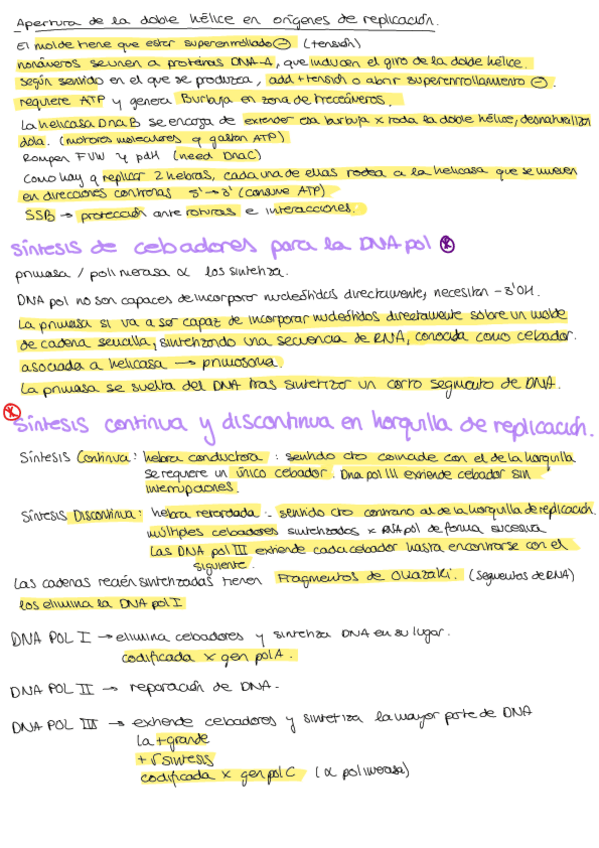 Apertura de la doble hélice en orígenes de replicación.
El molde tiene que estar superenrollado ⊖ (tensión)
nonámeros se unen a proteínas DNA-A, que inducen el giro de la doble hélice.
según sentido en el que se produzca, add + tensión o abrir superenrollamiento ⊖.
requiere ATP y genera Burbuja en zona de trecámeros.
La helicasa DnaB se encarga de extender esa burbuja x toda la doble hélice, desnaturalizan
dola. (motores moleculares q gastan ATP)
Rompen FVW y pdH (need DnaC)
Como hay q replicar 2 hebras, cada una de ellas rodea a la helicasa que se mueven
en direcciones contrarias 5'→3' (consume ATP)
SSB → protección ante roturas e interacciones.
Síntesis de cebadores para la DNA pol *
primasa / polimerasa α los sintetiza.
DNA pol no son capaces de incorporar nucleótidos directamente, necesitan -3'OH.
La primasa si va a ser capaz de incorporar nucleótidos directamente sobre un molde
de cadena sencilla, sintetizando una secuencia de RNA, conocida como cebador.
asociada a helicasa → primosoma.
La primasa se suelta del DNA tras sintetizar un corto segmento de DNA.
* Síntesis continua y discontinua en horquilla de replicación.
Síntesis Continua: hebra conductora : sentido cto coincide con el de la horquilla
se requiere un único cebador. Dna pol III extiende cebador sin
interrupciones.
Síntesis Discontinua: hebra retardada - sentido cto contrario al de la horquilla de replicación.
múltiples cebadores sintetizados x RNA pol de forma sucesiva
Las DNA pol III extiende cada cebador hasta encontrarse con el
siguiente.
Las cadenas recién sintetizadas tienen Fragmentos de Okazaki. (segmentos de RNA)
los elimina la DNA pol I
DNA POL I → elimina cebadores y sintetiza DNA en su lugar.
codificada x gen pol A.
DNA POL II → reparación de DNA.
DNA POL III → extiende cebadores y sintetiza la mayor parte de DNA
la + grande
+ √ síntesis
codificada x gen pol C (α polimerasa)